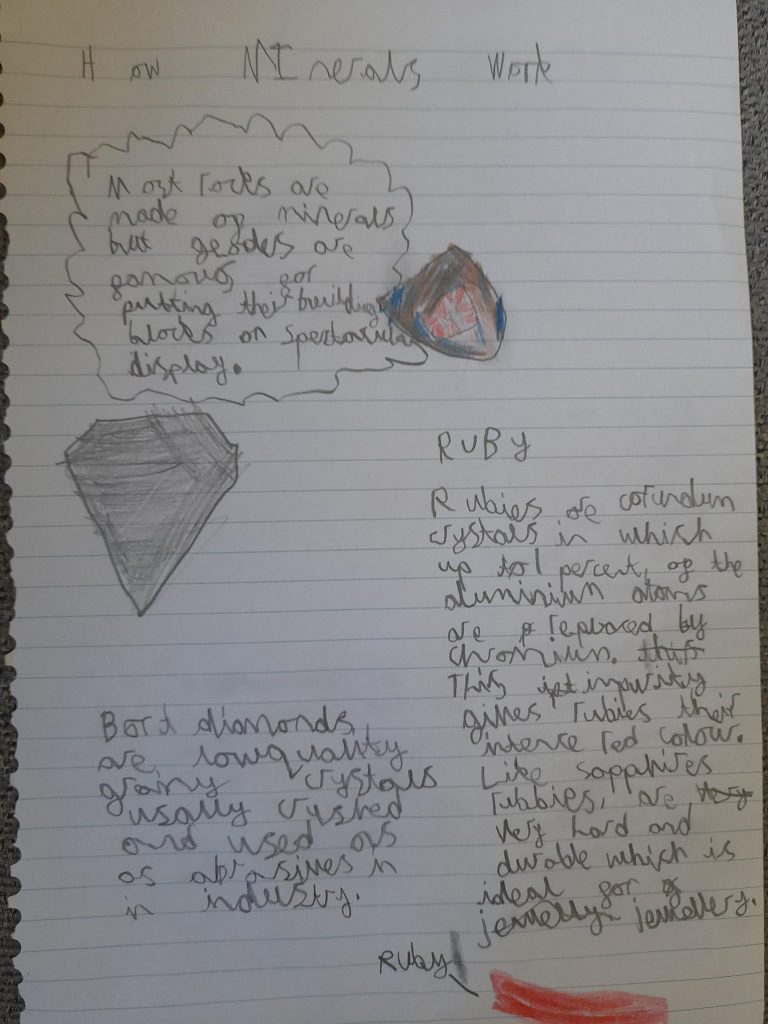 How MInerals Work
Most rocks are
made of minerals
but geodes are
famous for
putting their building
blocks on spectacular
display.
RUBY
Rubies are corundum
crystals in which
up to 1 percent, of the
aluminium atoms
are replaced by
chromium. this
This impurity
gives rubies their
intense red colour.
Like sapphires
rubbies, are very
very hard and
durable which is
ideal for
jewelly jewellery.
Bort diamonds
are lowquality
grainy crystals
usally crushed
and used as
as abrasives in
in industry.
Ruby